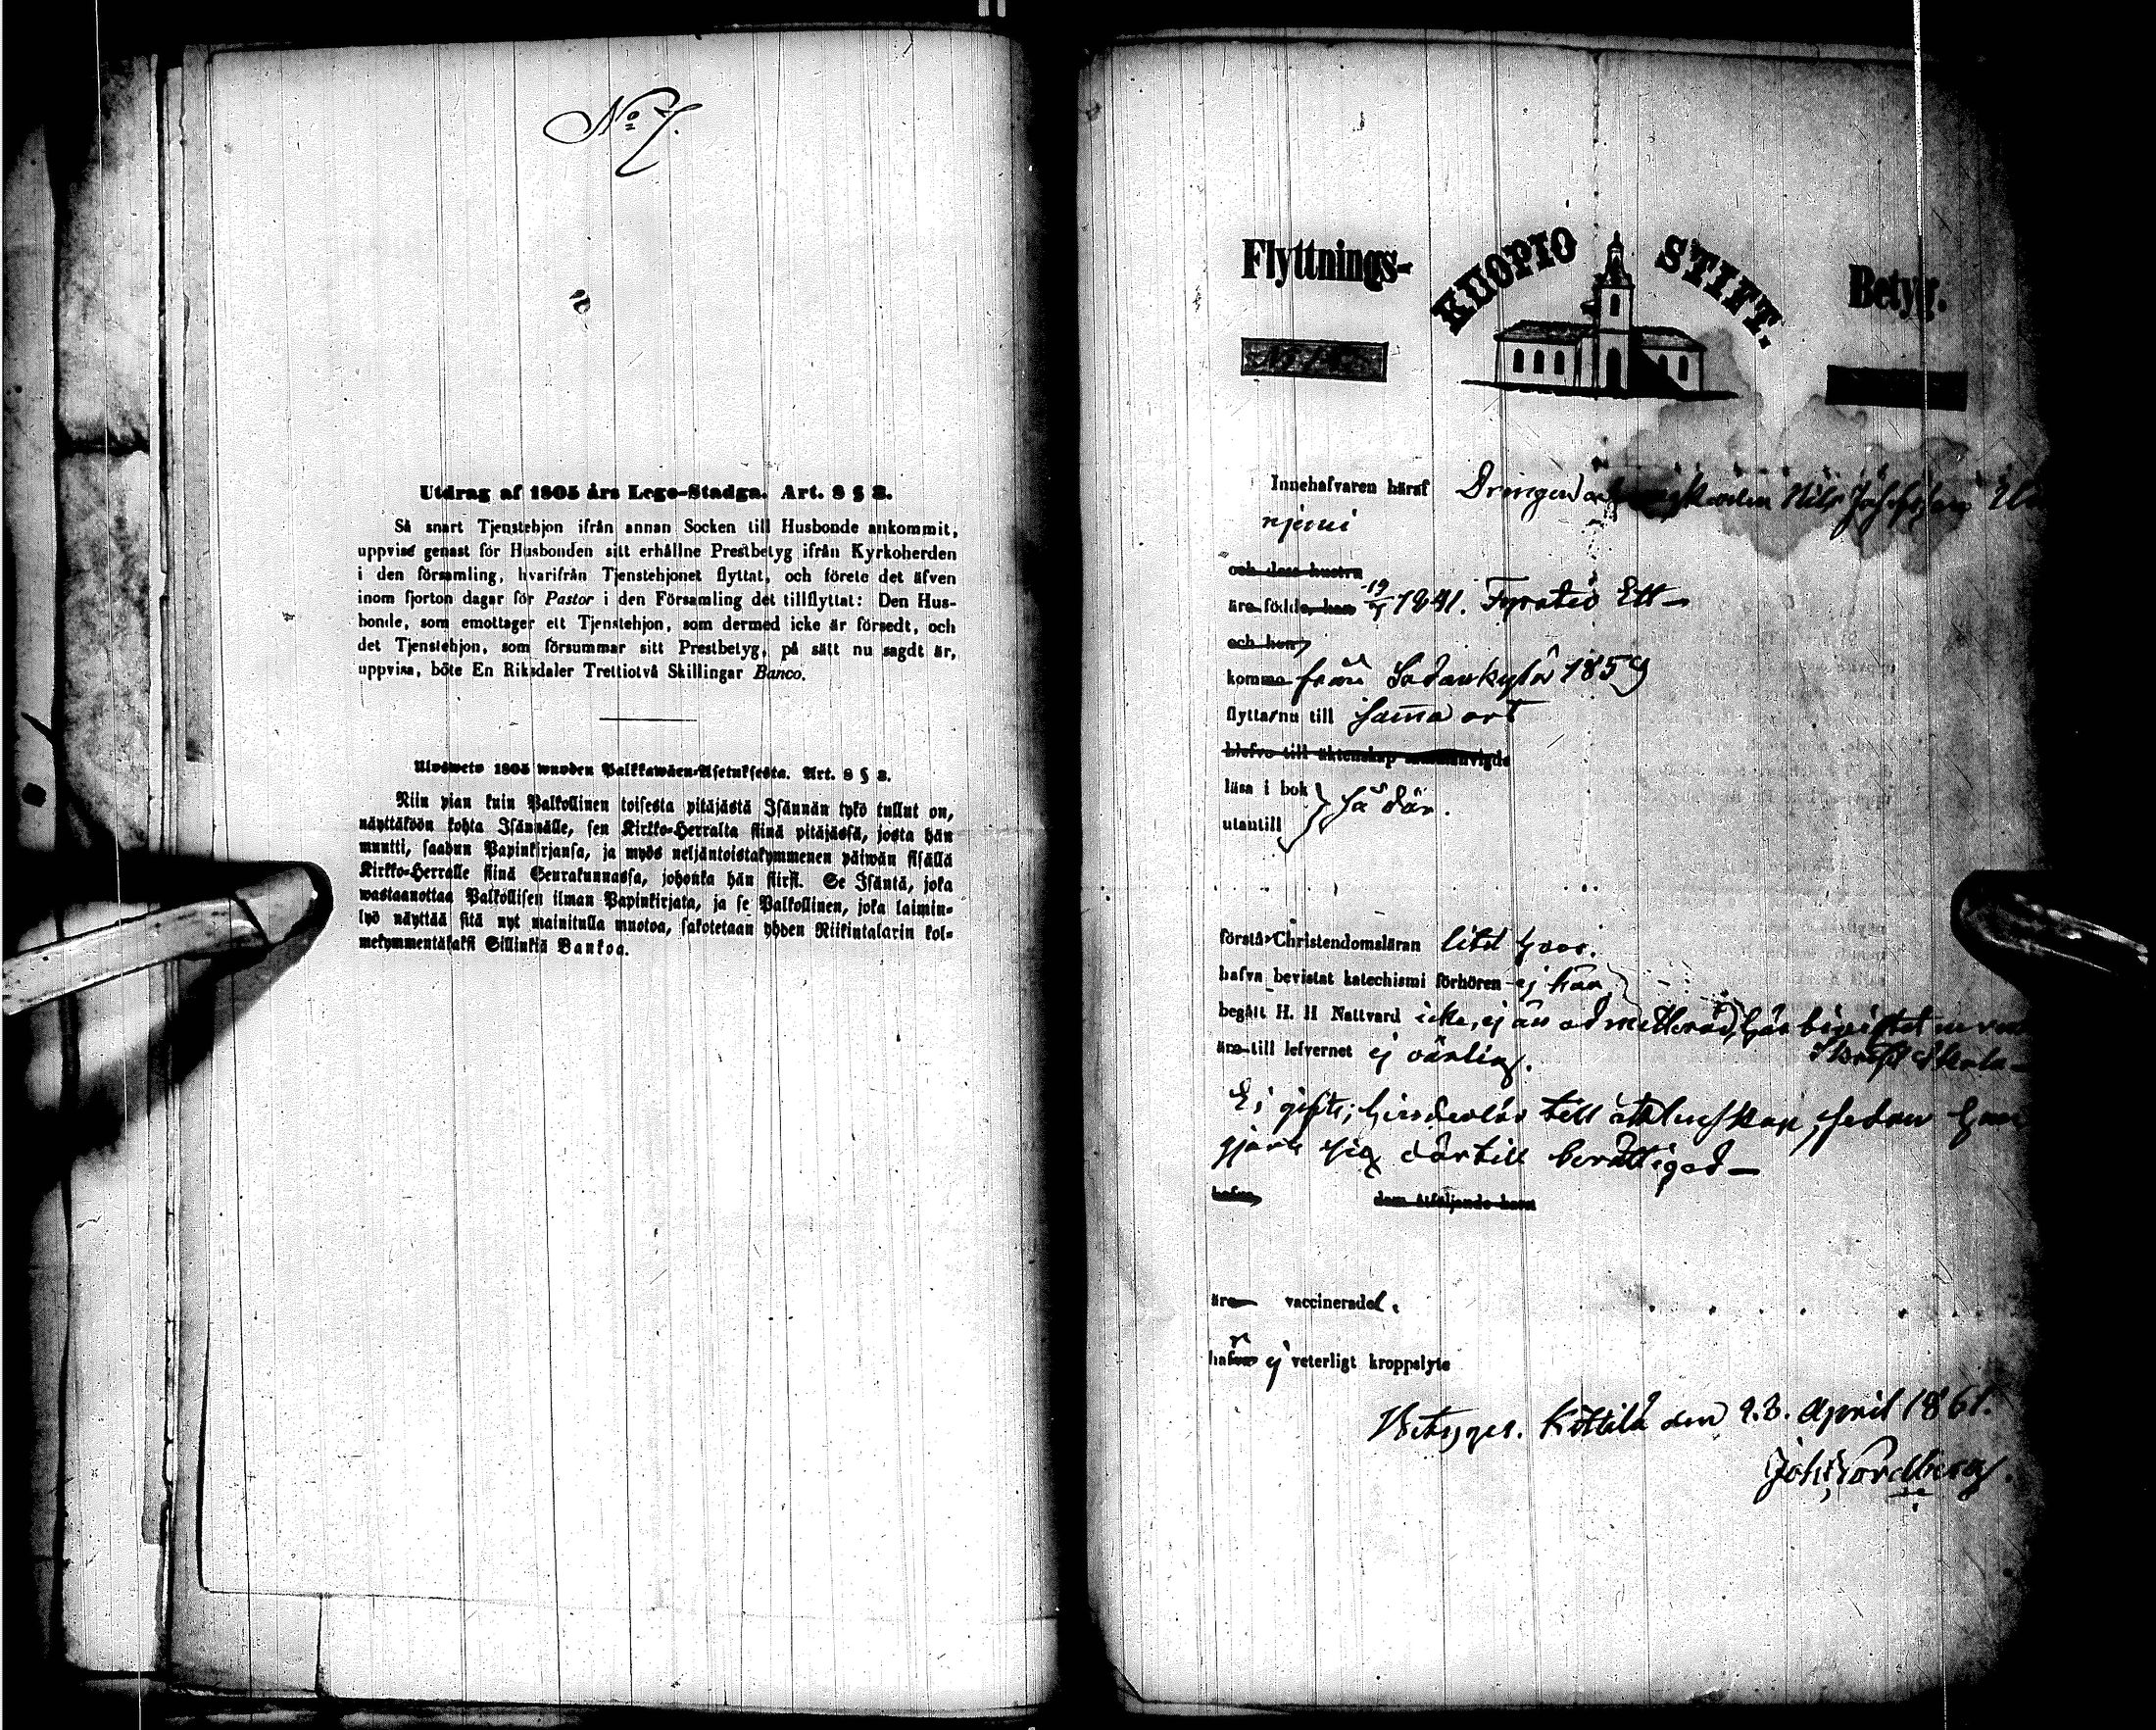 No 7.
Utdrag af 1805 års Lego-Stadga. Art. 8 § 3.
Så snart Tjenstehjon ifrån annan Socken till Husbonde ankommit,
uppvise genast för Husbonden sitt erhållne Prestbetyg ifrån Kyrkoherden
i den församling, hvarifrån Tjenstehjonet flyttat, och förete det äfven
inom fjorton dagar för Pastor i den Församling det tillflyttat: Den Hus-
bonde, som emottager ett Tjenstehjon, som dermed icke är försedt, och
det Tjenstehjon, som försummar sitt Prestbetyg, på sätt nu sagdt är,
uppvisa, böte En Riksdaler Trettiotvå Skillingar Banco.
Ulosweto 1805 wuoden Palkkawäen-Asetuksesta. Art. 8 § 3.
Niin pian kuin Palkollinen toisesta pitäjästä Isännän tykö tullut on,
näyttäköön kohta Isännälle, sen Kirkko-Herralta siinä pitäjässä, josta hän
muutti, saadun Papinkirjansa, ja myös neljäntoistakymmenen päiwän sisällä
Kirkko-Herralle siinä Seurakunnassa, johonka hän siirsi. Se Isäntä, joka
wastaanottaa Palkollisen ilman Papinkirjata, ja se Palkollinen, joka laimin-
lyö näyttää sitä nyt mainitulla muotoa, sakotetaan yhden Riikintalarin kol-
mekymmentäkaksi Sillinkiä Bankoa.
Flyttnings- KUOPIO STIFT. Betyg.
Innehafvaren häraf Drengen Nils Johansson
njemi
och dess hustru
äro födde, han 19/7 1841. Fyratio Ett
och hon
komma från Sodankylä 1859
flytta nu till samma ort
blefvo till äktenskap sammanvigde
läsa i bok
så där.
utantill
förstå Christendomsläran litet
hafva bevistat katechismi förhören ej här
begått H. H Nattvard icke, ej än admitterad, bevistat
Skrift Skola
äro till lefvernet ej vänlig.
Ej gift; hinderlös till äktenskap, sedan han
gjort sig därtill berättigad
hafva dem åtföljande barn
äro vaccinerade.
hafva ej veterligt kroppslyte
Betygar. Kittilä den 23. April 1861.
Joh. Nordberg.